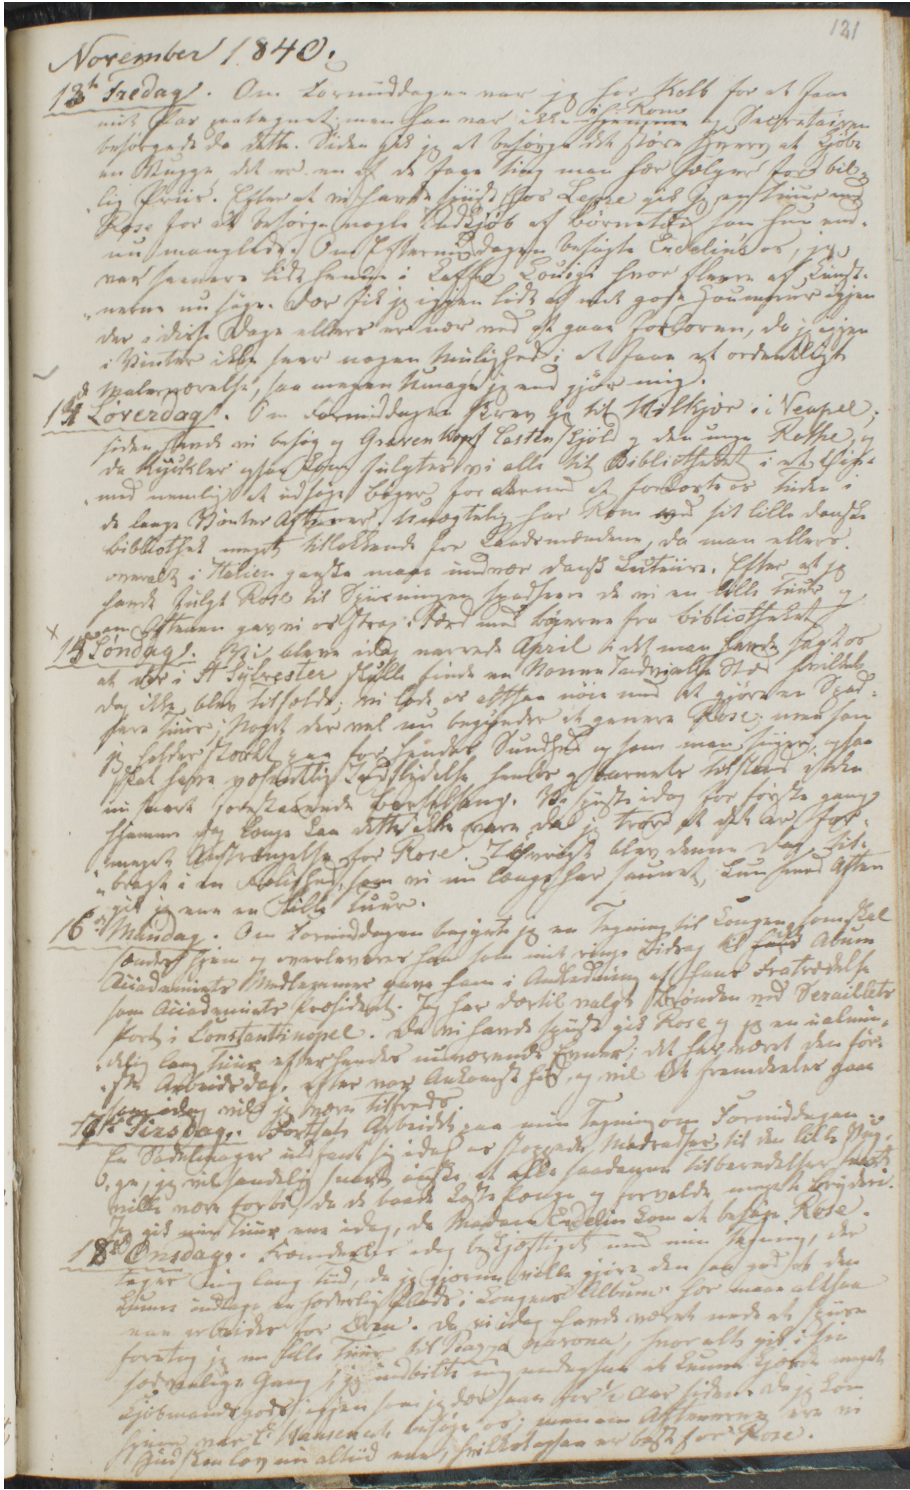 121
November 1840.
13de Fredag. Om Formiddagen var jeg hos Kolb for at faae
mit Pas paategnet; men han var ikke hjemme i Rom og Secretairen
besørgede da dette. Siden gik jeg at besørge det store Hverv at kjøbe
en Vugge det er en af de faae Ting man her sælger for bil-
lig Priis. Efter at vi havde spiist hos Lepre gik jeg en Tuur med
Rose for at besørge nogle Indkjøb af Børnetøi som hun end-
nu manglede. Om Eftermiddagen besøgte Endelins os, jeg
var senere lidt henne i Caffe hvor flere af Kunst-
nerne nu søge. Der fik jeg igjen lidt af mit gode Houmeur igjen
der i disse Dage ellers er nær ved at gaae forloren, da jeg igjen
i Vinter ikke seer nogen Mulighed i at faae et ordentligt
Malerværelse, saa megen Umage jeg end gjør mig.
14de Løverdag. Om Formiddagen skrev jeg til Vilkjær i Neapel;
siden havde vi besøg af Gravenkopf Castenskjold og den unge Rothe, og
da Küchler ogsaa kom fulgtes vi alle til Bibliotheket i et Øie-
med nemlig at udsøge Bøger for dermed at forkorte os Tiden i
de lange Vinter Aftener. Unægtelig har Rom ved sit lille danske
Bibliothek meget tillokkende for Landsmændene, da man ellers
overalt i Italien ganske maae undvære dansk Lecture. Efter at jeg
havde fulgt Rose til Spiisningen spadserede vi en lille Tuur og
om Aftenen gav vi os strax i Færd med Bøgerne fra Bibliotheket
15de Søndag. Vi bleve idag narrede April i det man havde sagt os
at der i St Sylvester skulle finde en Nonne Indvielse Sted hvilket
dog ikke blev tilfældet; vi lode os altsaa nøie med at gjøre en Spad-
sere Tuur; Noget der vel nu begynder at genere Rose; men som
jeg holder stærkt paa for hendes Sundhed og som man siger, ogsaa
skal have væsentlig Indflydelse paa hendes og Barnets Tilstand i den
nu snart forestaaende Barselseng. Vi spiste idag for første gang
hjemme dog længe kan dette ikke vare da jeg troer at det er for-
meget Anstrængelse for Rose. Iøvrigt blev denne Dag til-
bragt i en Rolighed, som vi nu længe har savnet, kun mod Aften
gik jeg ene en lille Tuur.
16de Mandag. Om Formiddagen begyndte jeg en Tegning til Kongen som skal
sendes hjem og overleveres ham som mit ringe Bidrag til det Album
Academiets Medlemmer gave ham i Anledning af hans Fratrædelse
som Academiets Præsident. Jeg har dertil valgt Brønden ved Seraillets
Port i Constantinopel. Da vi havde spiist gik Rose og jeg en ualmin-
delig lang Tuur efter hendes nuværende Evner; det har været den før-
ste Arbeidsdag efter vor Ankomst hid, og vil det fremdeles gaae
som idag vil jeg være tilfreds.
17de Tirsdag. Fortsat Arbeidet paa min Tegning om Formiddagen.
En Sadelmager indfandt sig idag og stoppede Madratser til den lille Vug-
ge, jeg vil sandelig snart ønske at alle saadanne Tilberedelser snart
ville være forbi da de baade koste Penge og forvolde meget Bryderi.
Jeg gik min Tuur ene idag, da Madam Endelin kom at besøge Rose.
18de Onsdag. Fremdeles idag beskjæftiget med min Tegning, der
tager mig lang Tiid, da jeg gjerne ville gjøre den saa god at den
kunne indtage en hæderlig Plads i Kongens Album. Her maae altsaa
nu arbeides for Æren. Da vi idag havde været ude at spise
foretog jeg en lille Tuur til Piazza Navona, hvor alt gik i sin
sædvanlige Gang; jeg indbildte mig endogsaa at kunne kjende meget
Kjøbmandsgods igjen som jeg der saae for 2 Aar siden. Da jeg kom
hjem var C Hansen at besøge os; men om Aftenerne ere vi
Gud skee lov nu altid ene, hvilket ogsaa er bedst for Rose.